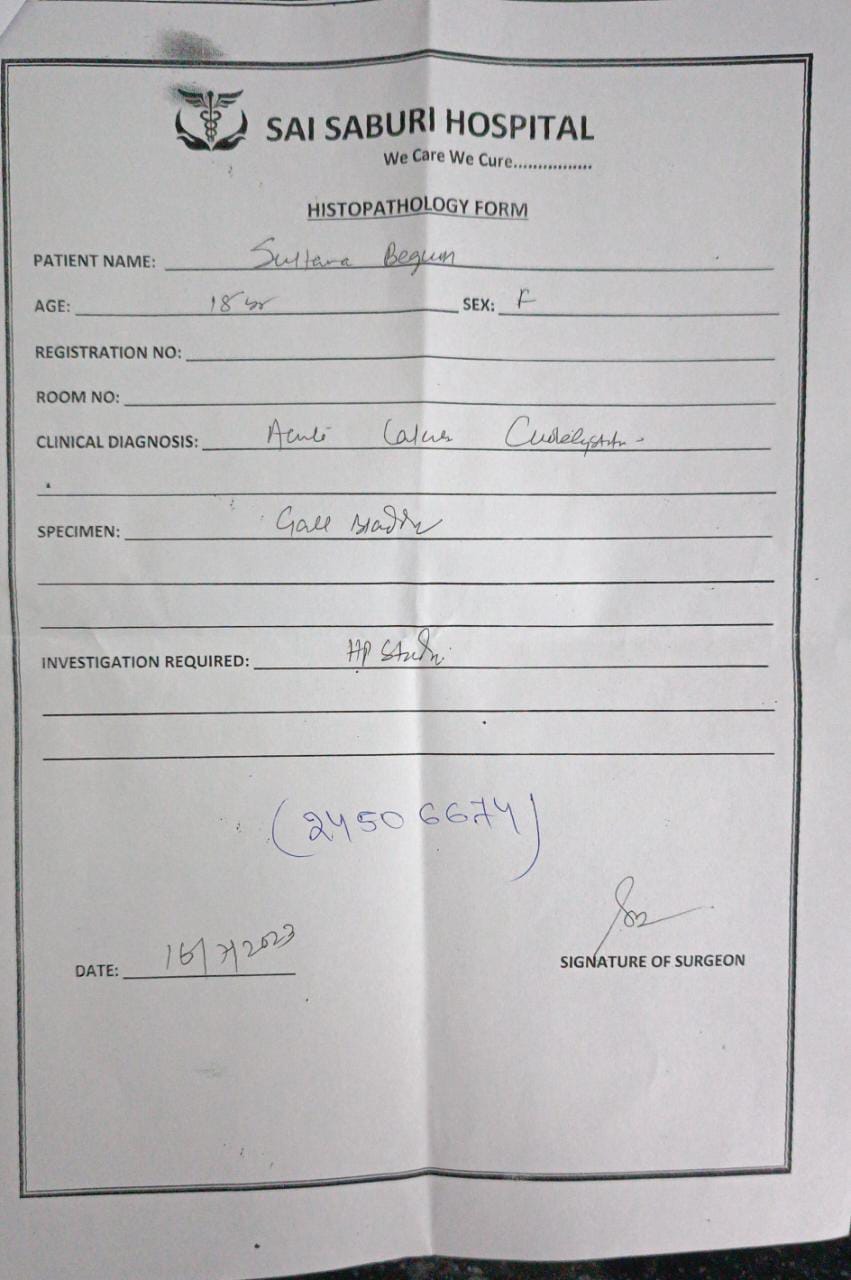 SAI SABURI HOSPITAL
We Care We Cure................
HISTOPATHOLOGY FORM
PATIENT NAME: Sultana Begum
AGE: 18 yr SEX: F
REGISTRATION NO:
ROOM NO:
CLINICAL DIAGNOSIS: Acute
SPECIMEN: Gall Bladder
INVESTIGATION REQUIRED: HP Study
(24506674)
DATE: 16/7/2023
SIGNATURE OF SURGEON